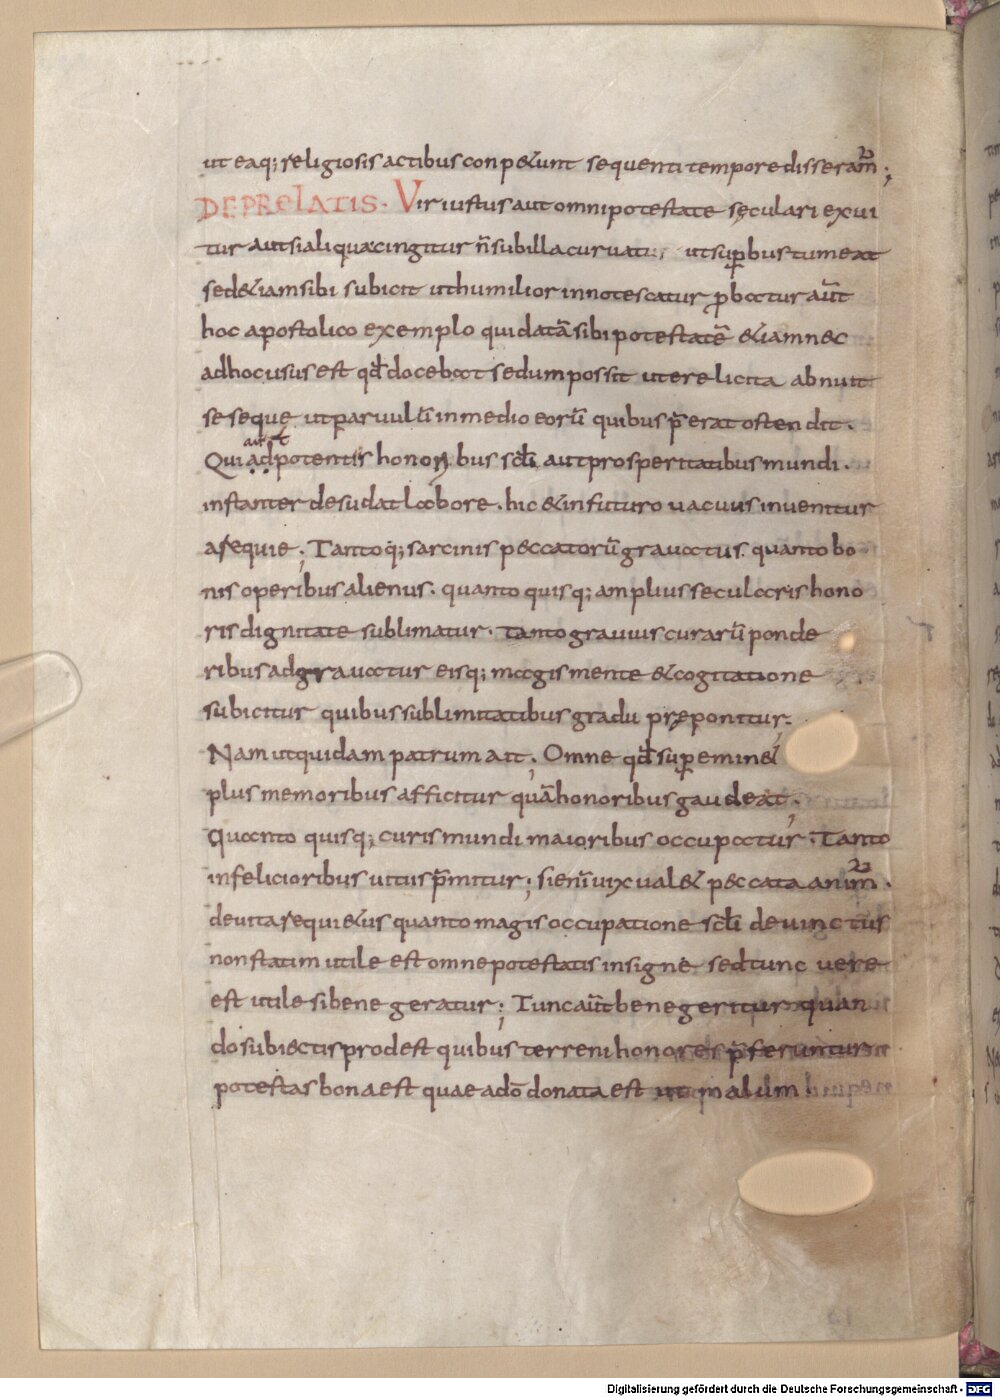 ut eaq; religiosis actibus conpetunt sequenti tempore disseram̄;
DE PRELATIS. Vir iustus aut omni potestate sęculari exui
tur aut si aliqua cingitur n̄ sub illa curvatur ut sup̄bus tumeat
sed &iam sibi subicit ut humilior innotescatur p̄batur aut̄
hoc apostolico exemplo qui datā sibi potestatē &iam nec
ad hoc usus est qd̄ docebat sed um possit ut ere licita abnuit
seseque ut parvulū in medio eorū quibus p̄erat ostendit.
Qui ad potentis honoribus scl̄i aut prosperitatibus mundi.
aut
instanter desudat labore. hic & in futuro vacuus invenitur
a requie; Tantoq; sarcinis peccatorū gravatus. quanto bo
nis operibus alienus. quanto quisq; amplius secularis hono
ris dignitate sublimatur. tanto gravius curarū ponde
ribus adgravatur eisq; magis mente & cogitatione
subicitur quibus sublimitatibus gradu pręponitur.
Nam ut quidam patrum ait; Omne qd̄ sup̄emin&
plus memoribus afficitur quā honoribus gaudeat;
Quanto quisq; curis mundi maioribus occupatur. Tanto
infelicioribus vitus p̄mitur; si enī vix val& peccata anim̄.
devita requi&us quanto magis occupatione scl̄i devinctus
non statim utile est omne potestatis insigne sed tunc vere
est utile si bene geratur; Tunc aut̄ bene geritur quan
do subiectis prodest quibus terreni honores p̄feruntur
potestas bona est quae a dō donata est ut malum